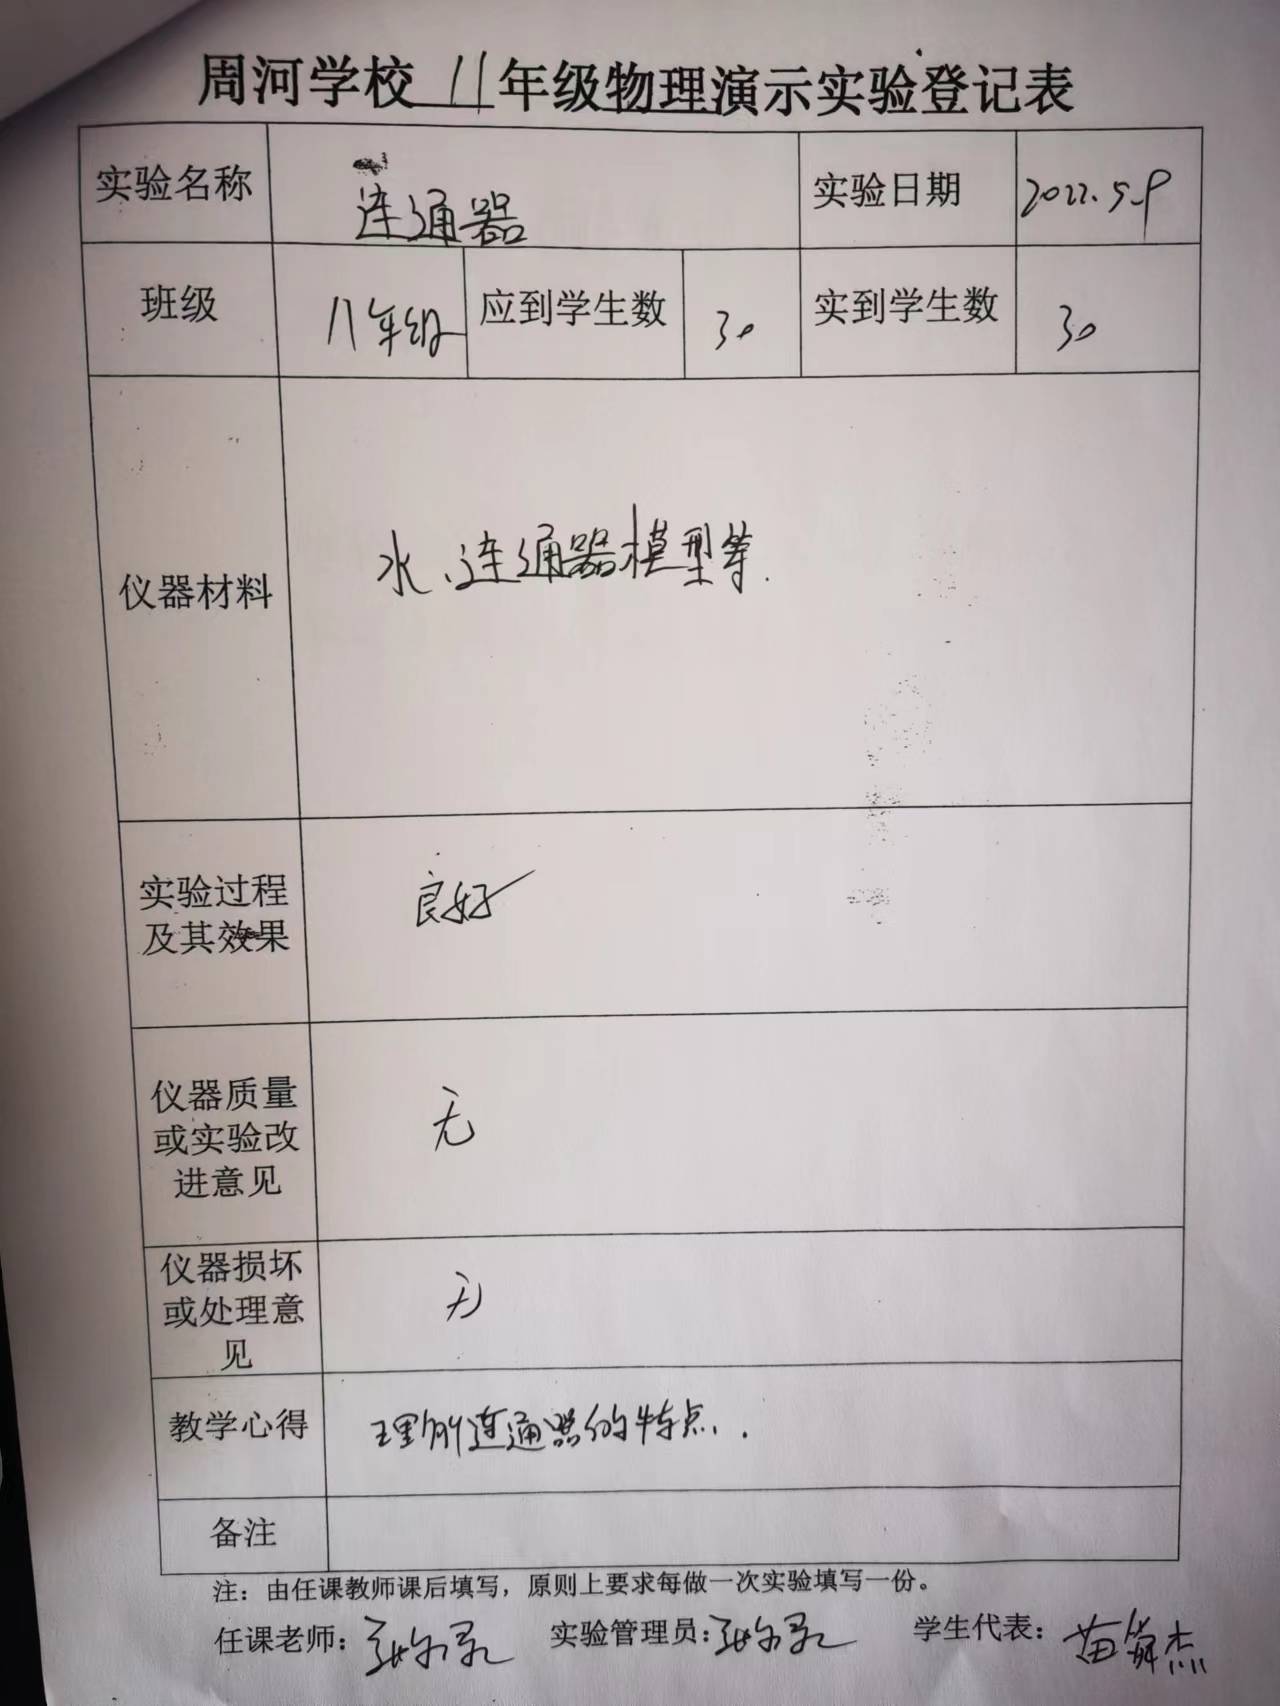 周河学校 八年级物理演示实验登记表
实验名称 连通器 实验日期 2022.5.9
班级 八年级 应到学生数 30 实到学生数 30
仪器材料 水、连通器模型等.
实验过程
及其效果
良好
仪器质量
或实验改
进意见
无
仪器损坏
或处理意
见
无
教学心得 理解连通器的特点.
备注
注：由任课教师课后填写，原则上要求每做一次实验填写一份。
任课老师： 实验管理员： 学生代表：